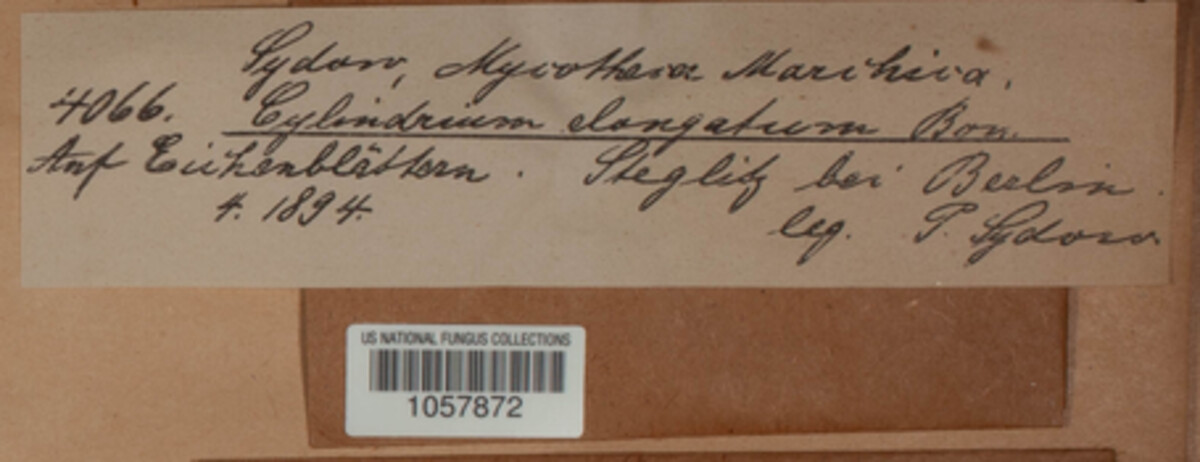 Sydow, Mycotheca Marchica.
4066. Cylindrium elongatum Bon.
Auf Eichenblättern. Steglitz bei Berlin.
4. 1894.
leg. P. Sydow.
US NATIONAL FUNGUS COLLECTIONS
1057872